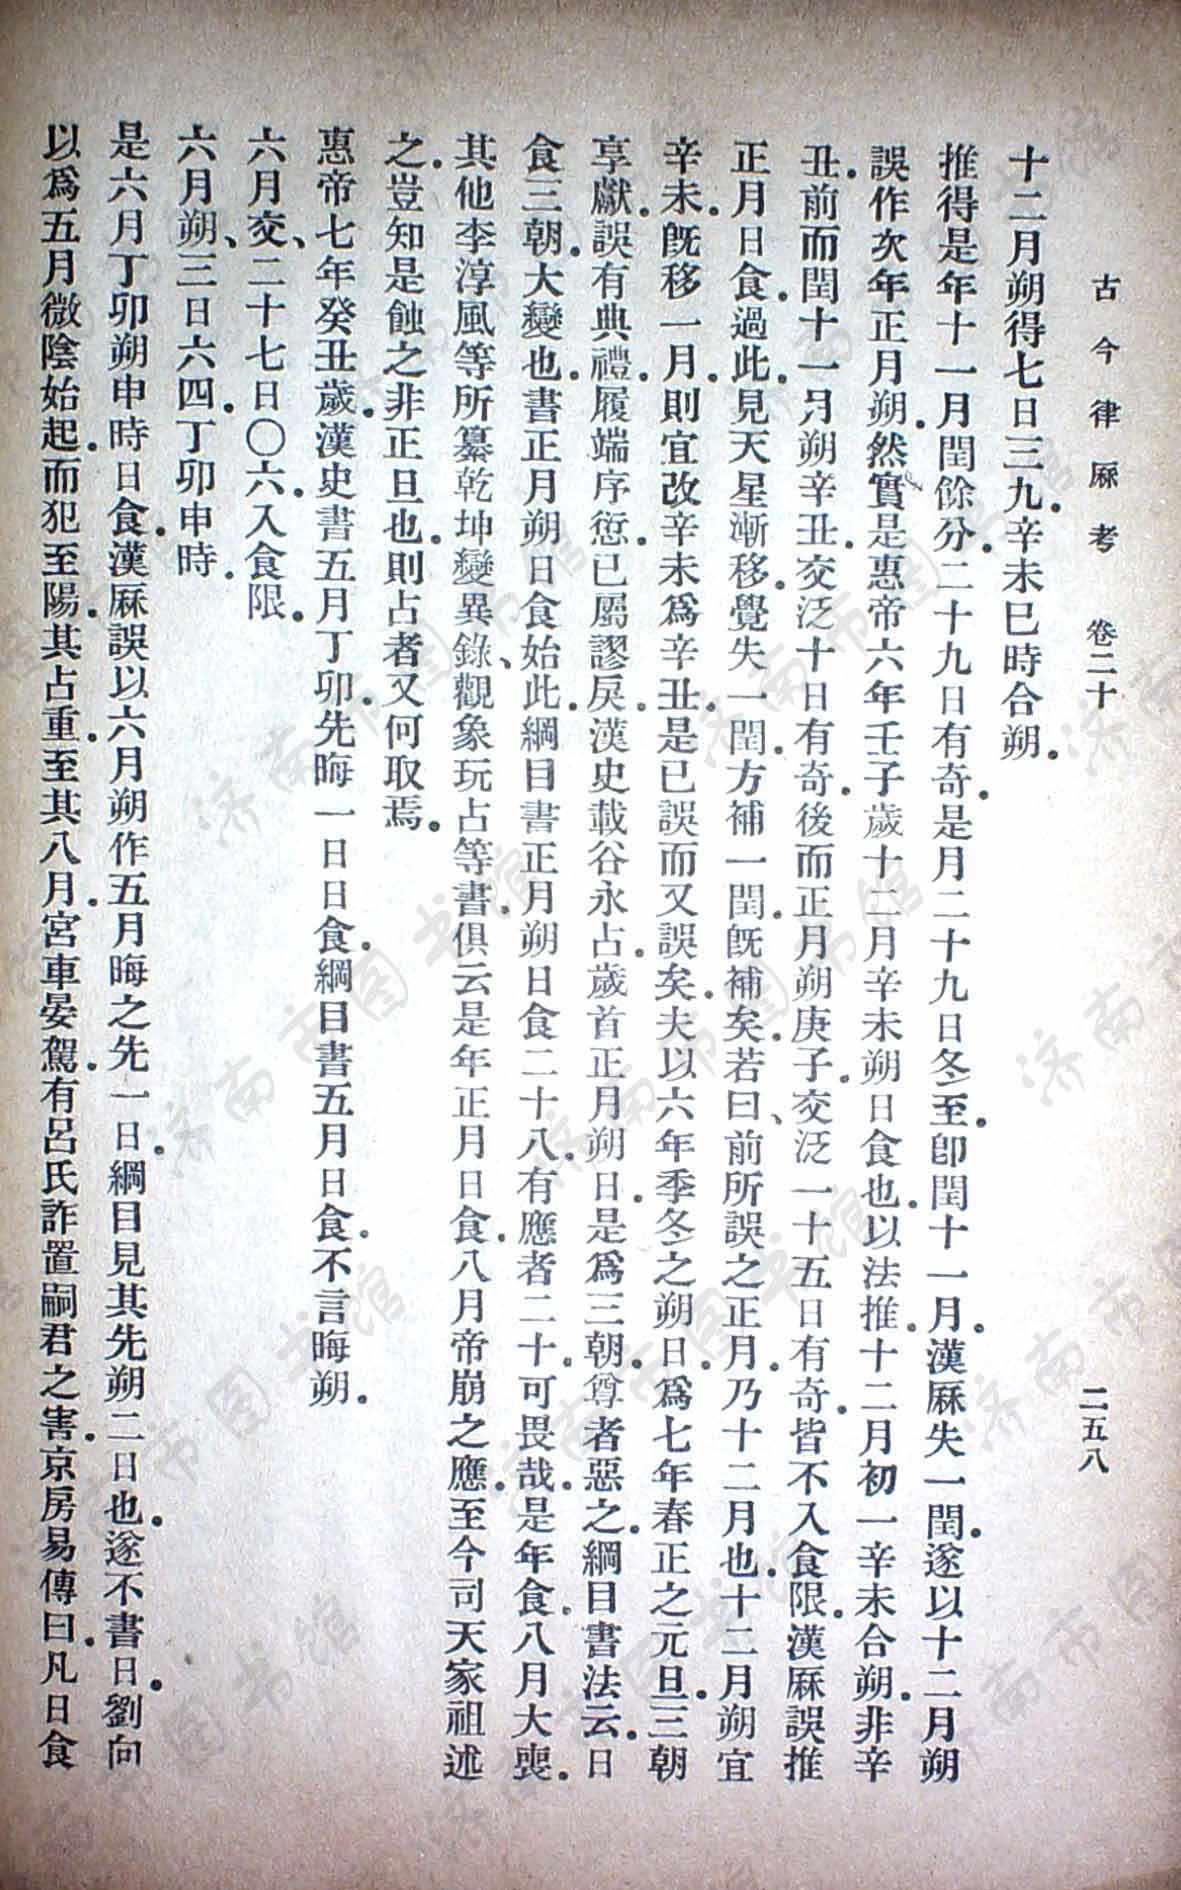 古今律厤考　卷二十　二五八
十二月朔得七日三九。辛未巳時合朔。
推得是年十一月閏餘分。二十九日有奇。是月二十九日冬至。卽閏十一月。漢厤失一閏。遂以十二月朔
誤作次年正月朔。然實是惠帝六年壬子歲十二月辛未朔日食也。以法推。十二月初一辛未合朔。非辛
丑。前而閏十一月朔辛丑。交泛十日有奇。後而正月朔庚子。交泛一十五日有奇。皆不入食限。漢厤誤推
正月日食。過此。見天星漸移。覺失一閏。方補一閏。旣補矣。若曰、前所誤之正月。乃十二月也。十二月朔宜
辛未。旣移一月。則宜改辛未爲辛丑。是已誤而又誤矣。夫以六年季冬之朔日。爲七年春正之元旦。三朝
享獻。誤有典禮。履端序愆。已屬謬戾。漢史載谷永占。歲首正月朔日。是爲三朝。尊者惡之。綱目書法云。日
食三朝。大變也。書正月朔日食始此。綱目書正月朔日食二十八。有應者二十。可畏哉。是年食。八月大喪。
其他李淳風等所纂乾坤變異錄、觀象玩占等書。俱云是年正月日食。八月帝崩之應。至今司天家祖述
之。豈知是蝕之非正旦也。則占者又何取焉。
惠帝七年癸丑歲。漢史書五月丁卯。先晦一日日食。綱目書五月日食。不言晦朔。
六月交、二十七日〇六。入食限。
六月朔、三日六四。丁卯申時。
是六月丁卯朔申時日食。漢厤誤以六月朔作五月晦之先一日。綱目見其先朔二日也。遂不書日。劉向
以爲五月微陰始起。而犯至陽。其占重。至其八月。宮車晏駕。有呂氏詐置嗣君之害。京房易傳曰。凡日食